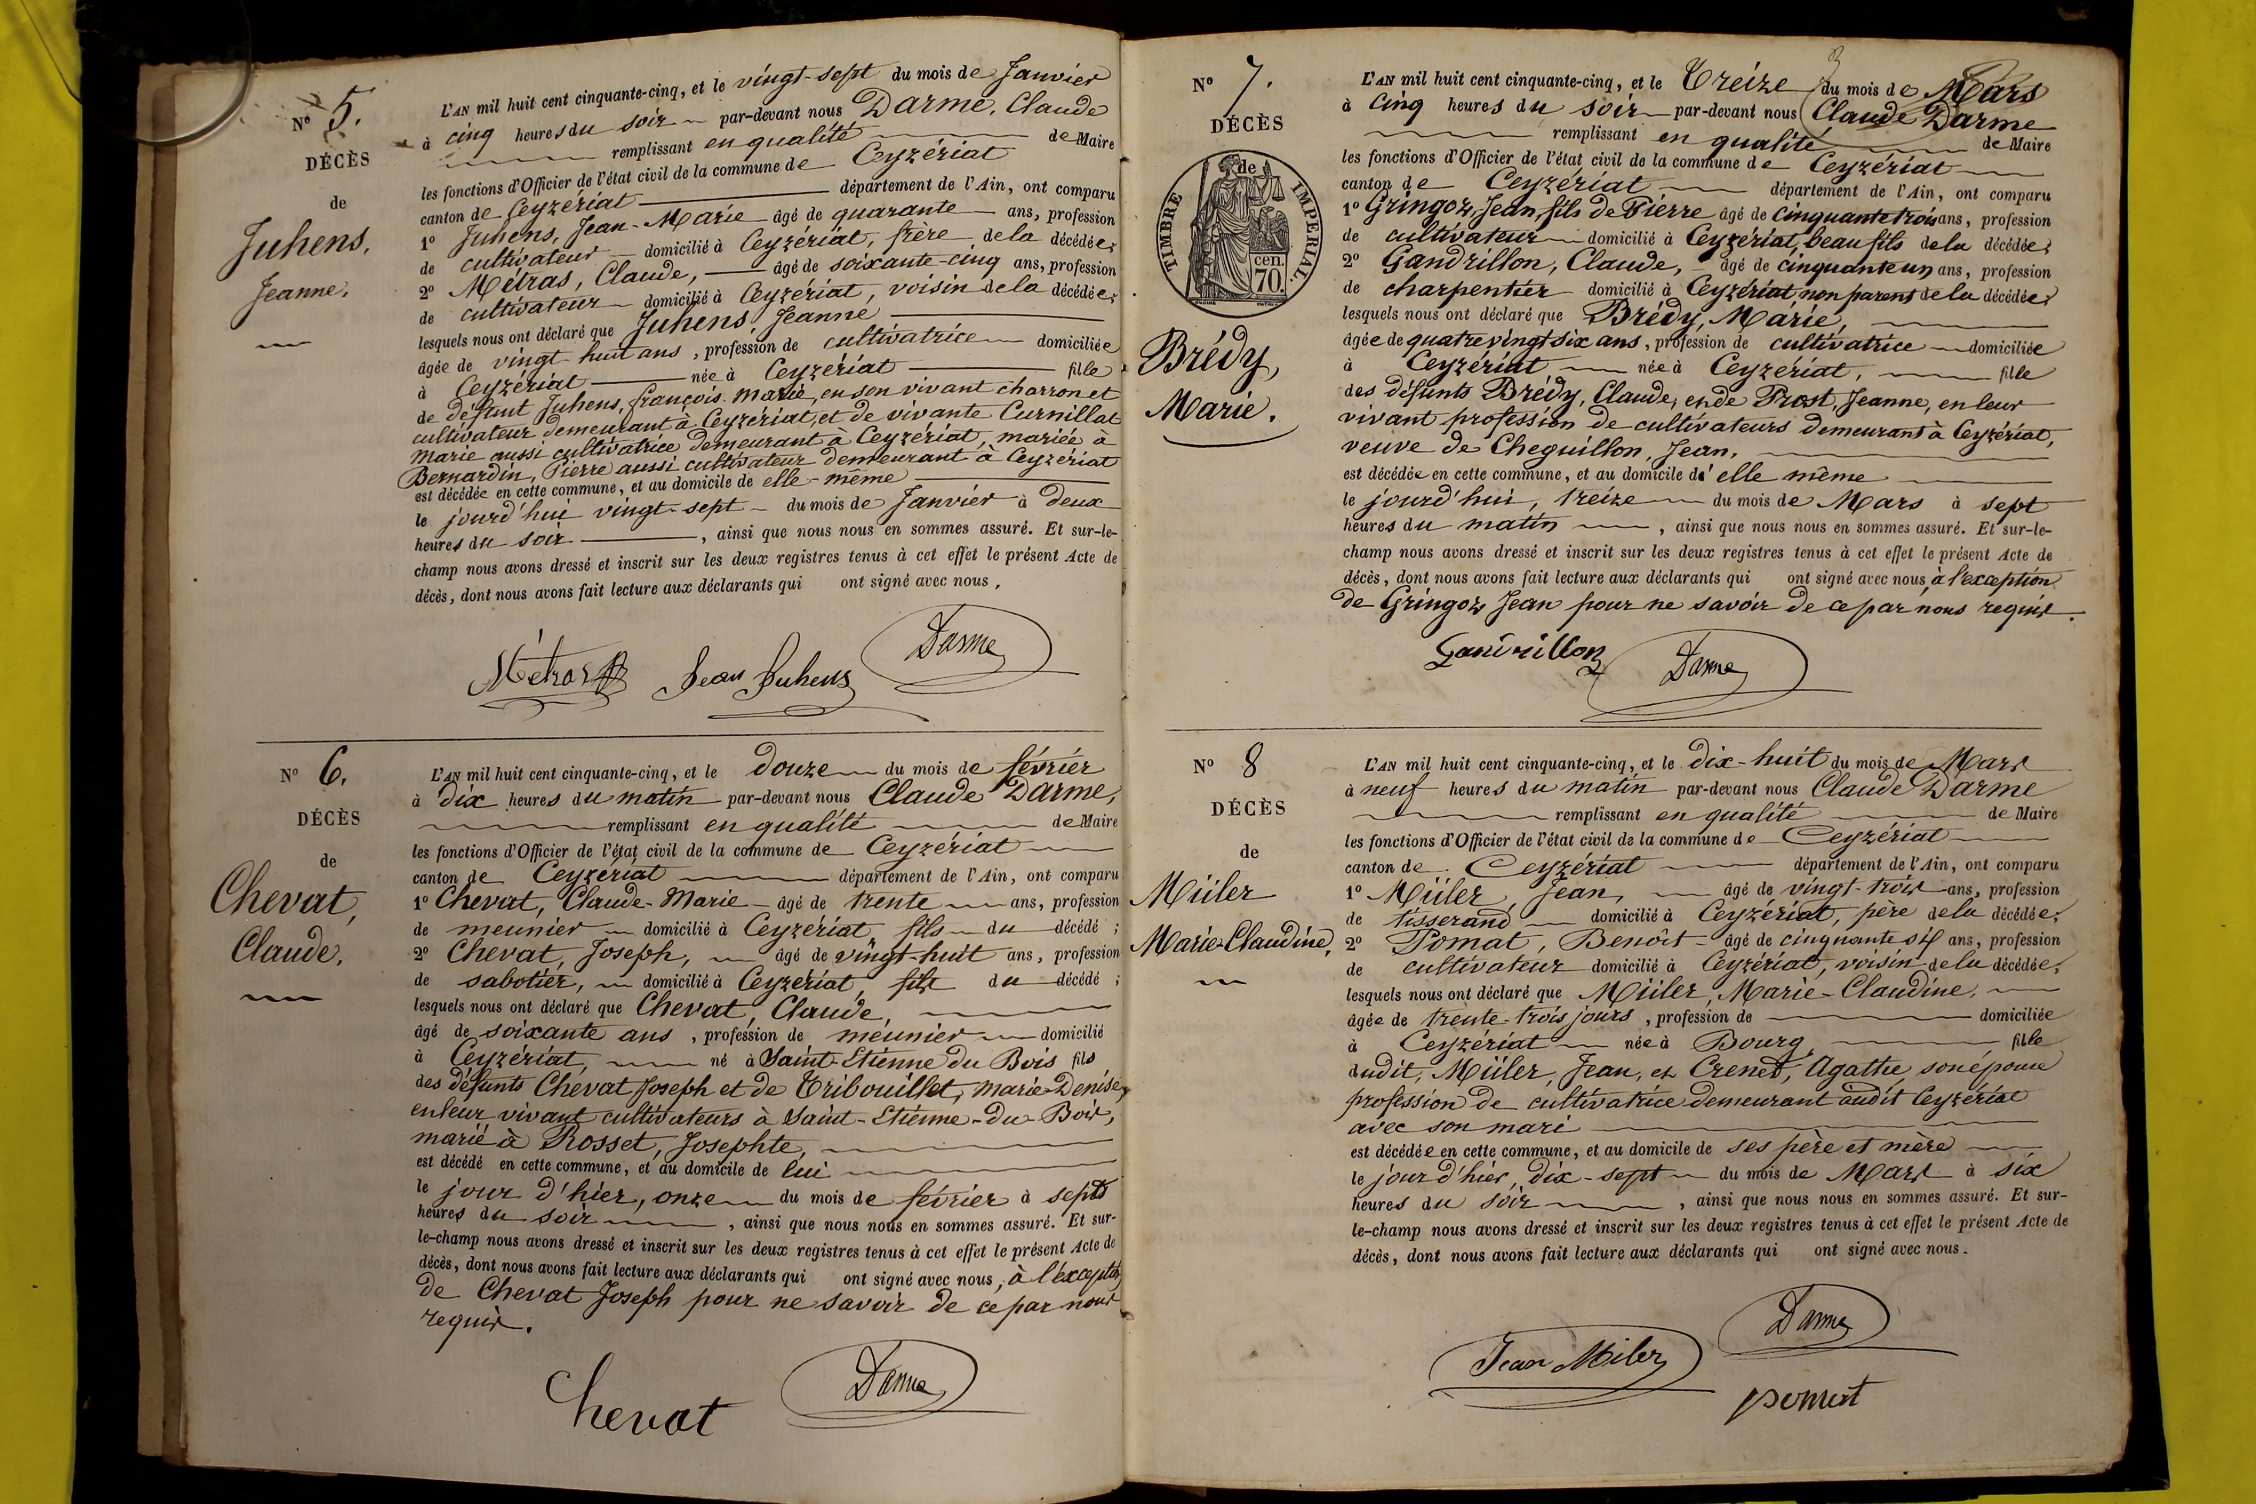 Nº 5.
DÉCÈS
de
Juhens,
Jeanne,
L'AN mil huit cent cinquante-cinq, et le vingt-sept du mois de Janvier
à cinq heures du soir par-devant nous Darme, Claude
remplissant en qualité de Maire
les fonctions d'Officier de l'état civil de la commune de Ceyzériat
canton de Ceyzériat département de l'Ain, ont comparu
1º Juhens, Jean-Marie âgé de quarante ans, profession
de cultivateur domicilié à Ceyzériat, frère de la décédée;
2º Métras, Claude, âgé de soixante-cinq ans, profession
de cultivateur domicilié à Ceyzériat, voisin de la décédée;
lesquels nous ont déclaré que Juhens, Jeanne
âgée de vingt-huit ans, profession de cultivatrice domiciliée
à Ceyzériat née à Ceyzériat fille
de défunt Juhens, françois-marie, en son vivant charron et
cultivateur demeurant à Ceyzériat, et de vivante Curnillat
Marie aussi cultivatrice demeurant à Ceyzériat, mariée à
Bernardin, Pierre aussi cultivateur demeurant à Ceyzériat
est décédée en cette commune, et au domicile de elle-même
le jourd'hui vingt-sept du mois de Janvier à deux
heures du soir, ainsi que nous nous en sommes assuré. Et sur-le-
champ nous avons dressé et inscrit sur les deux registres tenus à cet effet le présent Acte de
décès, dont nous avons fait lecture aux déclarants qui ont signé avec nous,
Métras Jean Juhens Darme
Nº 6.
DÉCÈS
de
Chevat,
Claude,
L'AN mil huit cent cinquante-cinq, et le douze du mois de février
à dix heures du matin par-devant nous Claude Darme,
remplissant en qualité de Maire
les fonctions d'Officier de l'état civil de la commune de Ceyzériat
canton de Ceyzériat département de l'Ain, ont comparu
1º Chevat, Claude-Marie âgé de trente ans, profession
de meunier domicilié à Ceyzériat fils du décédé;
2º Chevat, Joseph, âgé de vingt-huit ans, profession
de sabotier, domicilié à Ceyzériat, fils du décédé;
lesquels nous ont déclaré que Chevat, Claude,
âgé de soixante ans, profession de meunier domicilié
à Ceyzériat, né à Saint-Etienne du Bois fils
des défunts Chevat Joseph et de Tribouillet, marie-Denise,
en leur vivant cultivateurs à Saint-Etienne-du-Bois,
marié à Rosset, Josephte,
est décédé en cette commune, et au domicile de lui
le jour d'hier, onze du mois de février à sept
heures du soir, ainsi que nous nous en sommes assuré. Et sur-
le-champ nous avons dressé et inscrit sur les deux registres tenus à cet effet le présent Acte de
décès, dont nous avons fait lecture aux déclarants qui ont signé avec nous, à l'exception
de Chevat Joseph pour ne savoir de ce par nous
requis.
Chevat Darme
Nº 7.
DÉCÈS
de
TIMBRE IMPERIAL.
cen.
70.
Brédy,
Marie.
L'AN mil huit cent cinquante-cinq, et le Treize du mois de Mars
à Cinq heures du soir par-devant nous Claude Darme
remplissant en qualité de Maire
les fonctions d'Officier de l'état civil de la commune de Ceyzériat
canton de Ceyzériat département de l'Ain, ont comparu
1º Gringoz, Jean, fils de Pierre âgé de cinquante trois ans, profession
de cultivateur domicilié à Ceyzériat, beau fils de la décédée;
2º Gandrillon, Claude, âgé de cinquante un ans, profession
de charpentier domicilié à Ceyzériat, non parent de la décédée;
lesquels nous ont déclaré que Brédy, Marie,
âgée de quatre vingt six ans, profession de cultivatrice domiciliée
à Ceyzériat née à Ceyzériat, fille
des défunts Brédy, Claude, et de Prost, Jeanne, en leur
vivant profession de cultivateurs demeurant à Ceyzériat,
veuve de Cheguillon, Jean,
est décédée en cette commune, et au domicile d'elle même
le jourd'hui, treize du mois de Mars à sept
heures du matin, ainsi que nous nous en sommes assuré. Et sur-le-
champ nous avons dressé et inscrit sur les deux registres tenus à cet effet le présent Acte de
décès, dont nous avons fait lecture aux déclarants qui ont signé avec nous, à l'exception
de Gringoz Jean pour ne savoir de ce par nous requis.
Gandrillon Darme
Nº 8
DÉCÈS
de
Müler
Marie-Claudine,
L'AN mil huit cent cinquante-cinq, et le dix-huit du mois de Mars
à neuf heures du matin par-devant nous Claude Darme
remplissant en qualité de Maire
les fonctions d'Officier de l'état civil de la commune de Ceyzériat
canton de Ceyzériat département de l'Ain, ont comparu
1º Müler, Jean, âgé de vingt-trois ans, profession
de tisserand domicilié à Ceyzériat, père de la décédée;
2º Pomat, Benoît âgé de cinquante six ans, profession
de cultivateur domicilié à Ceyzériat, voisin de la décédée;
lesquels nous ont déclaré que Müler, Marie-Claudine,
âgée de trente-trois jours, profession de domiciliée
à Ceyzériat née à Bourg, fille
dudit, Müler, Jean, et Crenet, Agathe son épouse
profession de cultivatrice demeurant audit Ceyzériat
avec son mari
est décédée en cette commune, et au domicile de ses père et mère
le jour d'hier, dix-sept du mois de Mars à six
heures du soir, ainsi que nous nous en sommes assuré. Et sur-
le-champ nous avons dressé et inscrit sur les deux registres tenus à cet effet le présent Acte de
décès, dont nous avons fait lecture aux déclarants qui ont signé avec nous.
Darme
Jean Miler
pomat